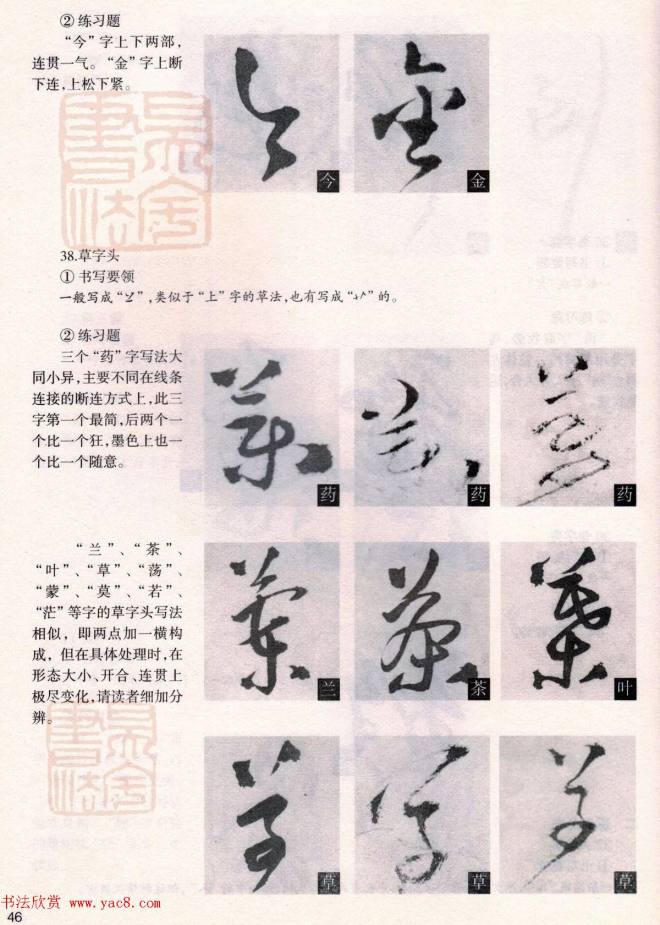 ② 练习题
“今”字上下两部，
连贯一气。“金”字上断
下连，上松下紧。
今
金
38.草字头
① 书写要领
一般写成“䒑”，类似于“上”字的草法，也有写成“丷”的。
② 练习题
三个“药”字写法大
同小异，主要不同在线条
连接的断连方式上，此三
字第一个最简，后两个一
个比一个狂，墨色上也一
个比一个随意。
药
药
药
“兰”、“茶”、
“叶”、“草”、“荡”、
“蒙”、“莫”、“若”、
“茫”等字的草字头写法
相似，即两点加一横构
成，但在具体处理时，在
形态大小、开合、连贯上
极尽变化，请读者细加分
辨。
兰
茶
叶
草
草
草
书法欣赏 www.yac8.com
46